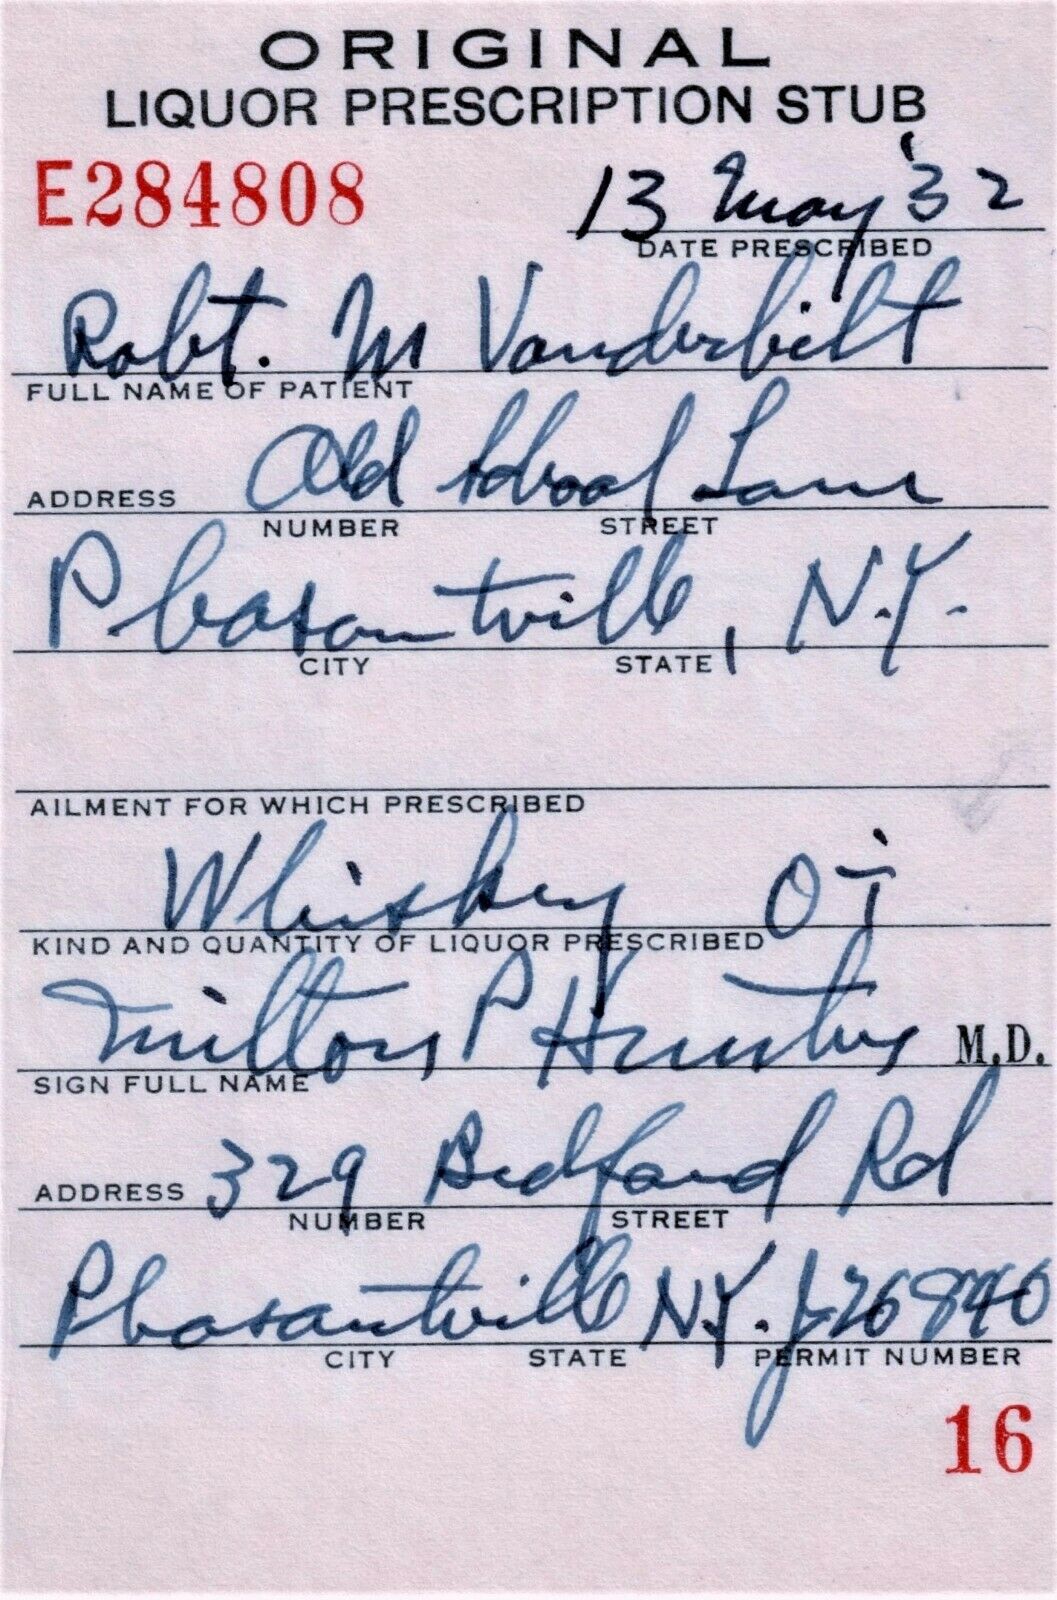 ORIGINAL
LIQUOR PRESCRIPTION STUB
E284808
13 May '32
DATE PRESCRIBED
Robt. M Vanderbilt
FULL NAME OF PATIENT
ADDRESS Old School Lane
NUMBER STREET
Pleasantville, N.Y.
CITY STATE
AILMENT FOR WHICH PRESCRIBED
Whiskey Oi
KIND AND QUANTITY OF LIQUOR PRESCRIBED
Milton P Hunter M.D.
SIGN FULL NAME
ADDRESS 329 Bedford Rd
NUMBER STREET
Pleasantville N.Y. 26840
CITY STATE PERMIT NUMBER
16